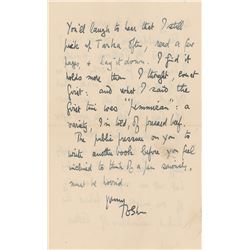 You'd laugh to hear that I still
pick up Tarka often, read a few
pages, & lay it down. I find it
holds more than I thought, even at
first: and what I said the
first time was "pemmican": a
variety, I'm told, of pressed beef.
The public pressure on you to
write another book before you feel
inclined to think of a pen seriously,
must be horrid.
Yours
TEShaw